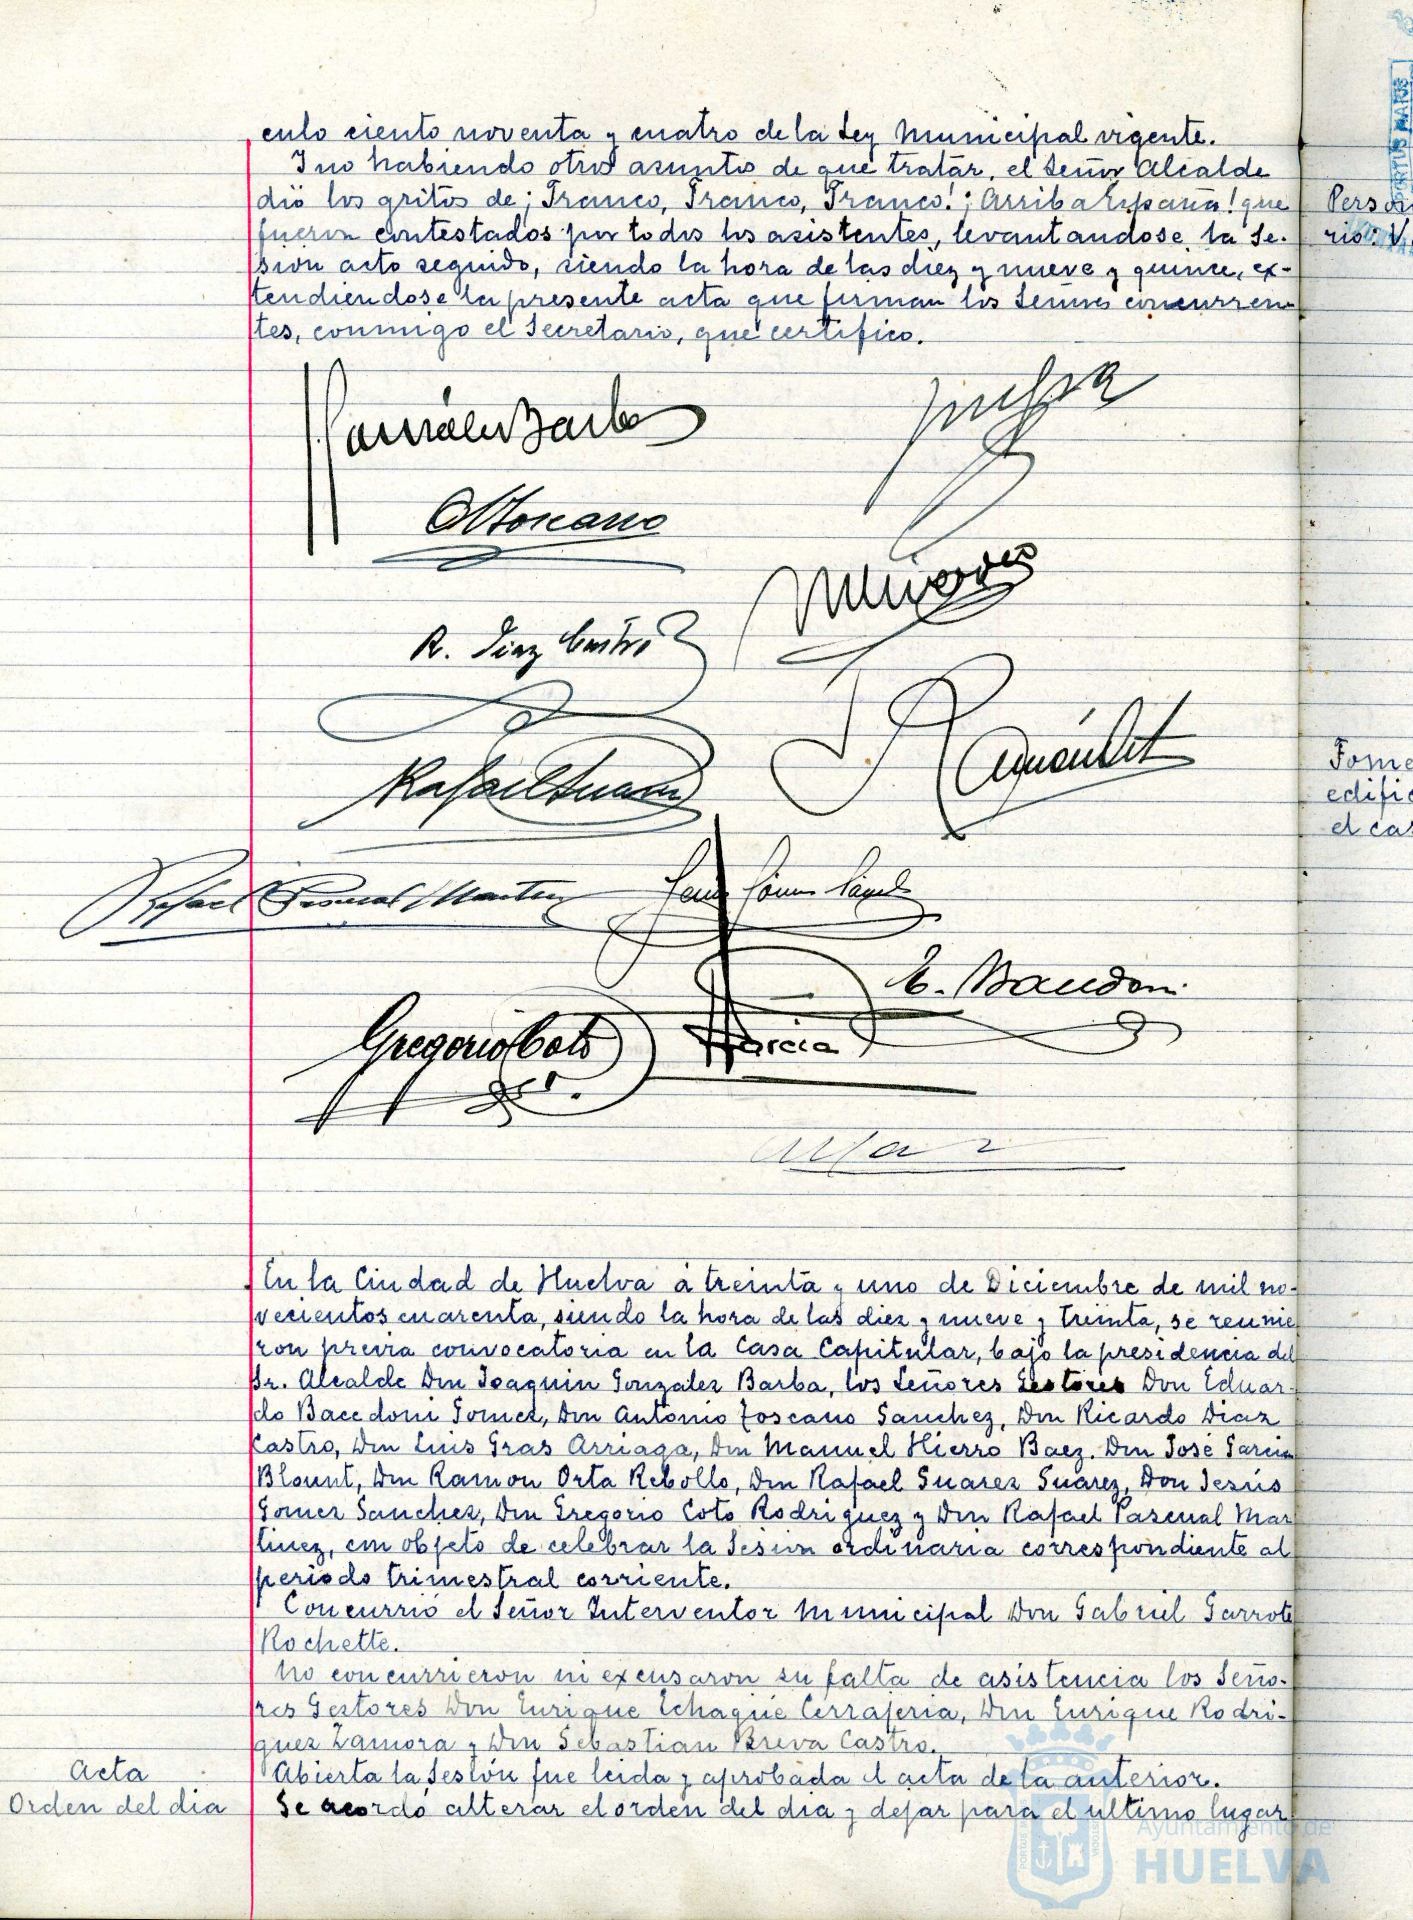 culo ciento noventa y cuatro de la Ley Municipal vigente.
Y no habiendo otro asunto de que tratar, el Señor Alcalde
dió los gritos de ¡Franco, Franco, Franco! ¡Arriba España! que
fueron contestados por todos los asistentes, levantandose la Se-
sion acto seguido, siendo la hora de las diez y nueve y quince, ex-
tendiendose la presente acta que firman los Señores concurren-
tes, conmigo el Secretario, que certifico.
González Barba
A Toscano
R. Diaz Castro
Rafael Suarez
Rafael Pascual Martinez
Jesus Gómez Sanchez
E. Bacedoni
Gregorio Coto
Garcia
En la Ciudad de Huelva á treinta y uno de Diciembre de mil no-
vecientos cuarenta, siendo la hora de las diez y nueve y treinta, se reunie
ron previa convocatoria en la Casa Capitular, bajo la presidencia del
Sr. Alcalde Don Joaquin Gonzalez Barba, los Señores Gestores Don Eduar-
do Bacedoni Gomez, Don Antonio Toscano Sanchez, Don Ricardo Diaz
Castro, Don Luis Gras Arriaga, Don Manuel Hierro Baez. Don José Garcia
Blount, Don Ramon Orta Rebollo, Don Rafael Suarez Suarez, Don Jesús
Gomez Sanchez, Don Gregorio Coto Rodriguez y Don Rafael Pascual Mar
tinez, con objeto de celebrar la Sesion ordinaria correspondiente al
periodo trimestral corriente.
Concurrió el Señor Interventor Municipal Don Gabriel Garrote
Rochette.
No concurrieron ni excusaron su falta de asistencia los Seño-
res Gestores Don Enrique Echagüe Cerrajeria, Don Enrique Rodri-
guez Zamora y Don Sebastian Breva Castro.
Acta
Abierta la Sesión fue leida y aprobada el acta de la anterior.
Orden del dia
Se acordó alterar el orden del dia y dejar para el ultimo lugar
Fome
edific
el cas
Ayuntamiento de
HUELVA